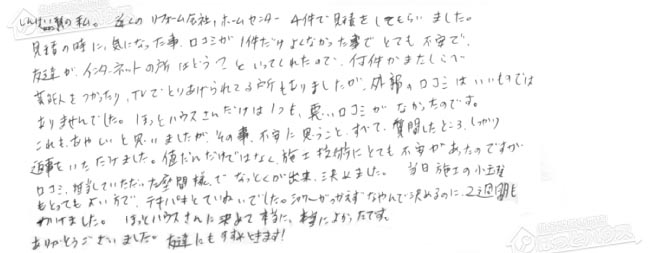 しんけい質の私。近くのリフォーム会社、ホームセンター 4件で見積をしてもらいました。
見積の時に、気になった事、口コミが1件だけよくなかった事でとても不安で、
友達が、インターネットの所はどう?といってくれたので、何件かまたしらべ
芸能人をつかったり、TVでとりあげられてる所もありましたが、外部の口コミはいいものでは
ありませんでした。ほっとハウスさんだけは1つも、悪い口コミがなかったのです。
これもあやしいと思いましたが、その事、不安に思うこと、すべて、質問したところ、しっかり
返事をいただけました。値だんだけではなく、施工技術にとても不安があったのですが
口コミ、担当していただいた座間様、でなっとくが出来、決めました。当日施工の小玉様
もとってもよい方で、テキパキとていねいでした。シャワーがつかえずなやんで決めるのに、2週間も
かけました。ほっとハウスさんに決めて本当に、本当によかったです。
ありがとうございました。友達にもすすめときます!